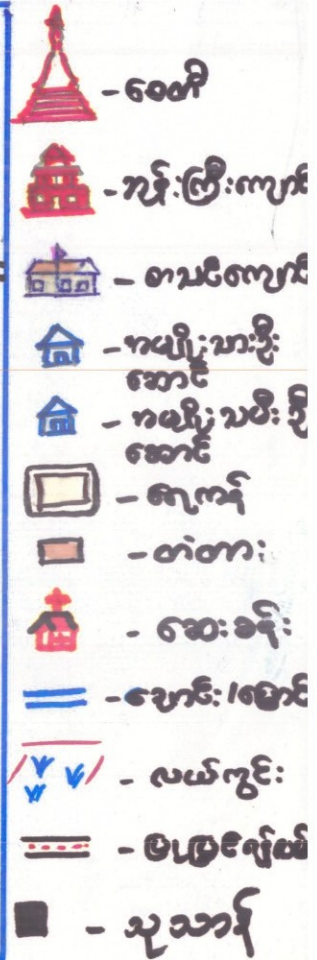 - စေတီ
- ဘုန်းကြီးကျောင်
- စာသင်ကျောင်
- အမျိုးသားဦး
ဆောင်
- အမျိုးသမီးဦ
ဆောင်
- ရေကန်
- တံတား
- ဆေးခန်း
- ချောင်း/မြောင်
- လယ်ကွင်း
- သုသာန်